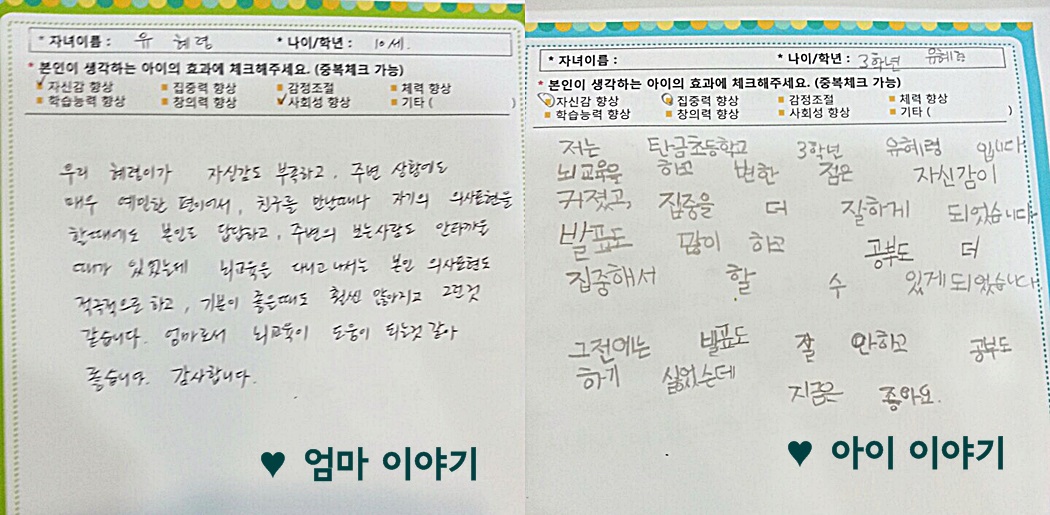 * 자녀이름 : 유 혜령 * 나이/학년 : 10세.
* 본인이 생각하는 아이의 효과에 체크해주세요. (중복체크 가능)
자신감 향상 집중력 향상 감정조절 체력 향상
학습능력 향상 창의력 향상 사회성 향상 기타 ( )
우리 혜령이가 자신감도 부족하고, 주변 상황에도
매우 예민한 편이여서, 친구를 만난때나 자기의 의사표현을
한때에도 본인도 답답하고, 주변의 보는사람도 안타까울
때가 있었는데 뇌교육을 다니고 나서는 본인 의사표현도
적극적으로 하고, 기분이 좋은때도 훨씬 많아지고 그런것
같습니다. 엄마로서 뇌교육이 도움이 되는것 같아
좋습니다. 감사합니다.
♥ 엄마 이야기
* 자녀이름 : * 나이/학년 : 3학년 유혜령
* 본인이 생각하는 아이의 효과에 체크해주세요. (중복체크 가능)
자신감 향상 집중력 향상 감정조절 체력 향상
학습능력 향상 창의력 향상 사회성 향상 기타 ( )
저는 탄금초등학교 3학년 유혜령 입니다
뇌교육을 하고 변한 점은 자신감이
커졌고, 집중을 더 잘하게 되었습니다.
발표도 많이 하고 공부도 더
집중해서 할 수 있게 되었습니다.
그전에는 발표도 잘 안하고 공부도
하기 싫었는데 지금은 좋아요.
♥ 아이 이야기